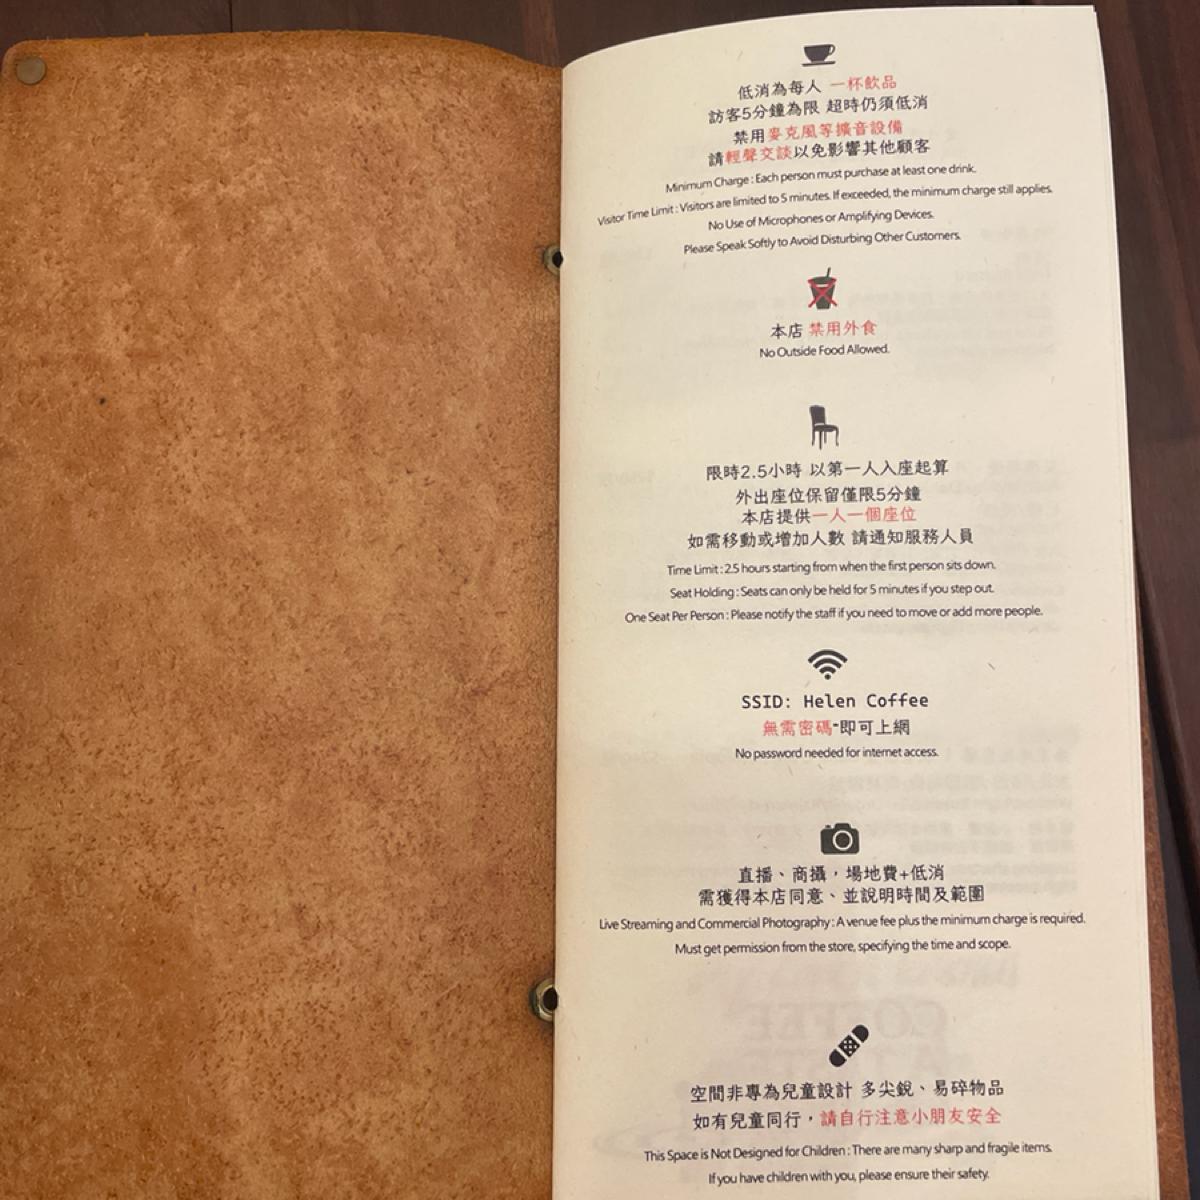 低消為每人 一杯飲品
訪客5分鐘為限 超時仍須低消
禁用麥克風等擴音設備
請輕聲交談以免影響其他顧客
Minimum Charge : Each person must purchase at least one drink.
Visitor Time Limit : Visitors are limited to 5 minutes. If exceeded, the minimum charge still applies.
No Use of Microphones or Amplifying Devices.
Please Speak Softly to Avoid Disturbing Other Customers.
本店 禁用外食
No Outside Food Allowed.
限時2.5小時 以第一人入座起算
外出座位保留僅限5分鐘
本店提供一人一個座位
如需移動或增加人數 請通知服務人員
Time Limit : 2.5 hours starting from when the first person sits down.
Seat Holding : Seats can only be held for 5 minutes if you step out.
One Seat Per Person : Please notify the staff if you need to move or add more people.
SSID: Helen Coffee
無需密碼-即可上網
No password needed for internet access.
直播、商攝，場地費+低消
需獲得本店同意、並說明時間及範圍
Live Streaming and Commercial Photography : A venue fee plus the minimum charge is required.
Must get permission from the store, specifying the time and scope.
空間非專為兒童設計 多尖銳、易碎物品
如有兒童同行，請自行注意小朋友安全
This Space is Not Designed for Children : There are many sharp and fragile items.
If you have children with you, please ensure their safety.